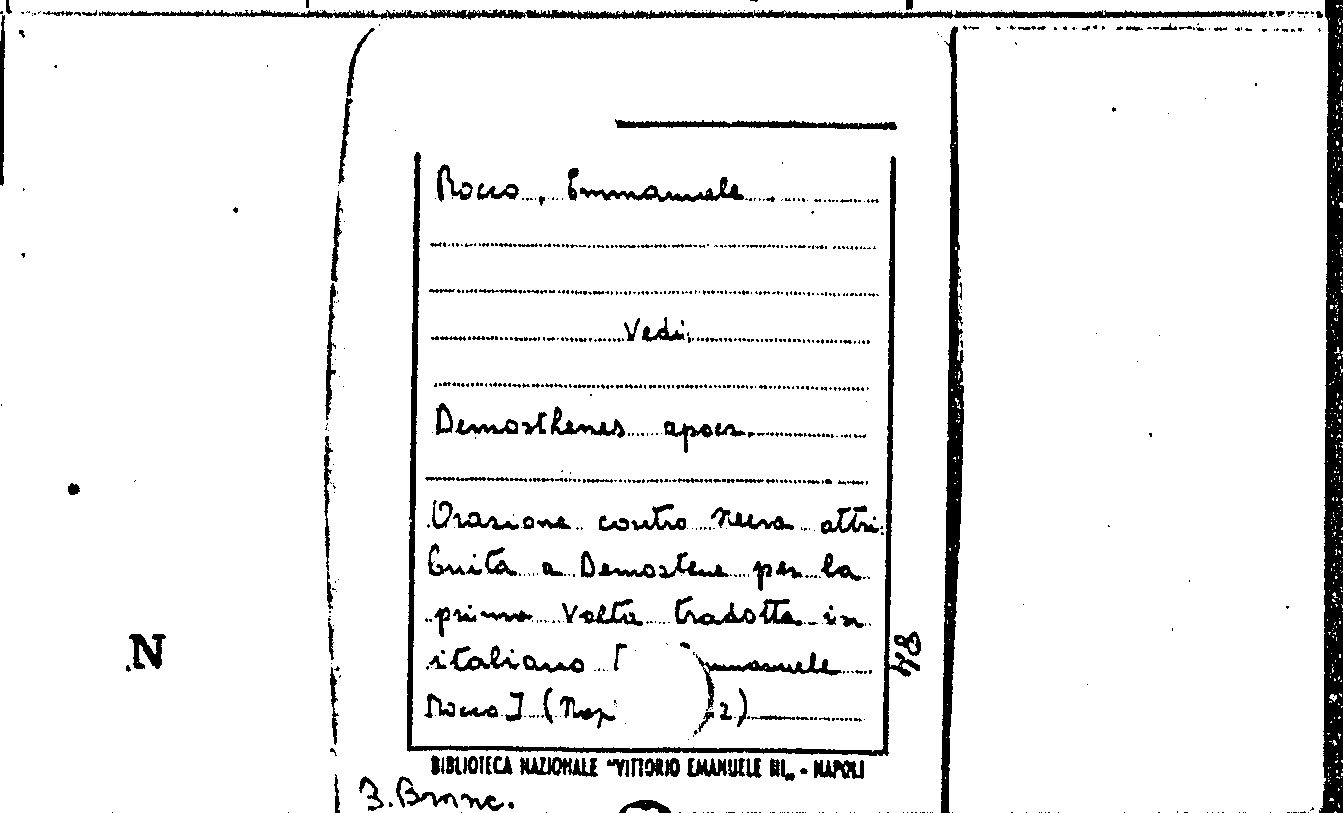 Rocco, Emmanuele
Vedi
Demosthenes apocr.
Orazione contro Neera attri
buita a Demostene per la
prima volta tradotta in
italiano [ mmanuele
Rocco] (Nap 2)
48
N
BIBLIOTECA NAZIONALE "VITTORIO EMANUELE III„ - NAPOLI